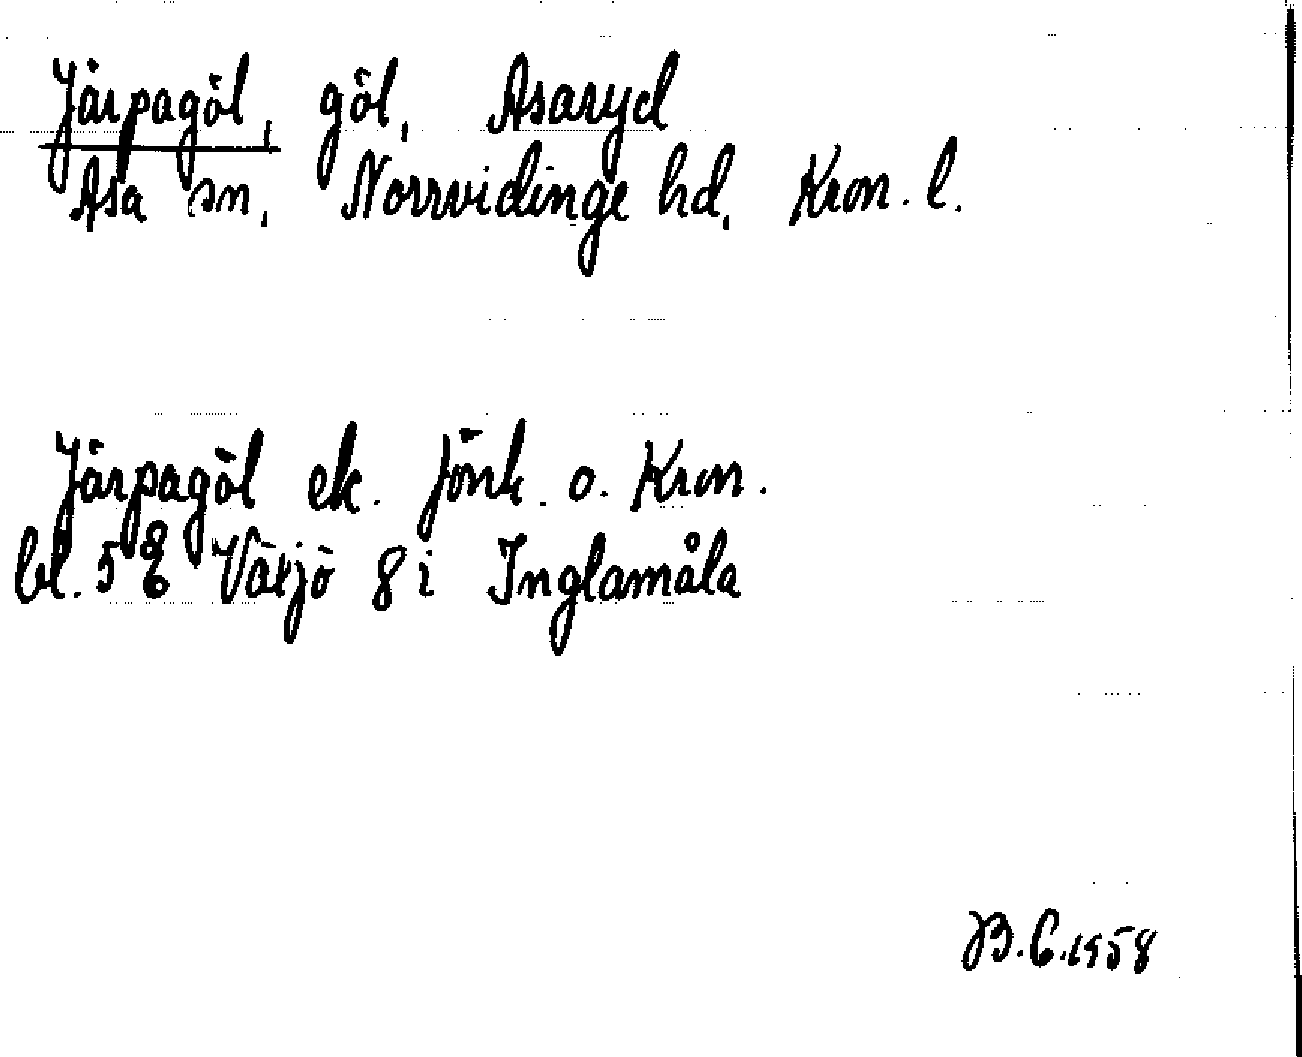 Järpagöl, göl, Asaryd
Asa sn, Norrvidinge hd, Kron. l.
Järpagöl ek. Jönk. o. Kron.
bl. 5 Växjö 8 i Inglamåla
B.C. 1958